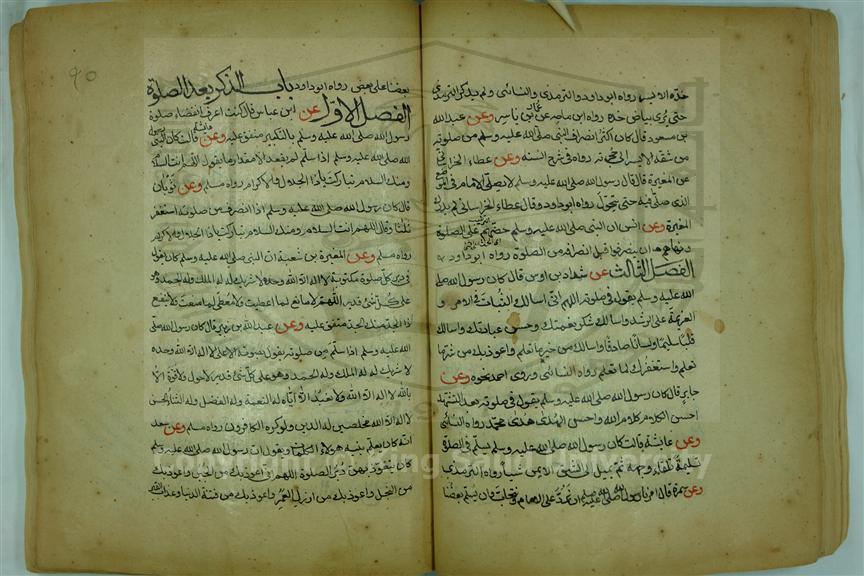 خده الايسر رواه ابوداود والترمذى والنسائى ولم يذكر الترمذى
حتى يرى بياض خده رواه ابن ماجه عن عمار بن ياسر وعن عبدالله
بن مسعود قال كان اكثر انصراف النبى صلى الله عليه وسلم من صلوته
من شقه الايسر الى حجرته رواه فى شرح السنه وعن عطاء الخراسانى
عن المغيرة قال قال رسول الله صلى الله عليه وسلم لا يصلى الامام فى الموضع
الذى صلى فيه حتى يتحول رواه ابوداود وقال عطاء الخراسانى لم يدرك
المغيرة وعن انس ان النبى صلى الله عليه وسلم حضهم على الصلوة
ونهاهم ان ينصرفوا قبل انصرافه من الصلوة رواه ابوداود
الفصل الثالث عن شداد بن اوس قال كان رسول الله صلى
الله عليه وسلم يقول فى صلوته اللهم انى اسالك الثبات فى الامر و
العزيمة على الرشد واسالك شكر نعمتك وحسن عبادتك واسالك
قلبا سليما ولسانا صادقا واسالك من خير ما تعلم واعوذ بك من شر ما
تعلم واستغفرك لما تعلم رواه النسائى وروى احمد نحوه وعن
جابر قال كان رسول الله صلى الله عليه وسلم يقول فى صلوته بعد التشهد
احسن الكلام كلام الله واحسن الهدى هدى محمد رواه النسائى
وعن عائشة قالت كان رسول الله صلى الله عليه وسلم يسلم فى الصلوة
تسليمة تلقاء وجهه ثم يميل الى الشق الايمن شيأ رواه الترمذى
وعن سمرة قال امرنا رسول الله صلى الله عليه وسلم ان نرد على الامام ونتحاب وان يسلم بعضنا
٩٥
بعضنا على بعض رواه ابوداود باب الذكر بعد الصلوة
الفصل الاول عن ابن عباس قال كنت اعرف انقضاء صلوة
رسول الله صلى الله عليه وسلم بالتكبير متفق عليه وعن عائشة قالت كان رسول
الله صلى الله عليه وسلم اذا سلم لم يقعد الا مقدار ما يقول اللهم انت السلام
ومنك السلام تباركت ياذا الجلال والاكرام رواه مسلم وعن ثوبان
قال كان رسول الله صلى الله عليه وسلم اذا انصرف من صلوته استغفر
ثلثا وقال اللهم انت السلام ومنك السلام تباركت ياذا الجلال والاكرام
رواه مسلم وعن المغيرة بن شعبة ان النبى صلى الله عليه وسلم كان يقول
فى دبر كل صلوة مكتوبة لا اله الا الله وحده لا شريك له له الملك وله الحمد وهو
على كل شئ قدير اللهم لا مانع لما اعطيت ولا معطى لما منعت ولا ينفع
ذا الجد منك الجد متفق عليه وعن عبدالله بن زبير قال كان رسول الله صلى
الله عليه وسلم اذا سلم من صلوته يقول بصوته الاعلى لا اله الا الله وحده
لا شريك له له الملك وله الحمد وهو على كل شئ قدير لا حول ولا قوة الا
بالله لا اله الا الله ولا نعبد الا اياه له النعمة وله الفضل وله الثناء الحسن
لا اله الا الله مخلصين له الدين ولو كره الكافرون رواه مسلم وعن سعد
انه كان يعلم بنيه هولاء الكلمات ويقول ان رسول الله صلى الله عليه وسلم
كان يتعوذ بهن دبر الصلوة اللهم انى اعوذ بك من الجبن واعوذ بك
من البخل واعوذ بك من ارذل العمر واعوذ بك من فتنة الدنيا وعذاب القبر
King Saud University